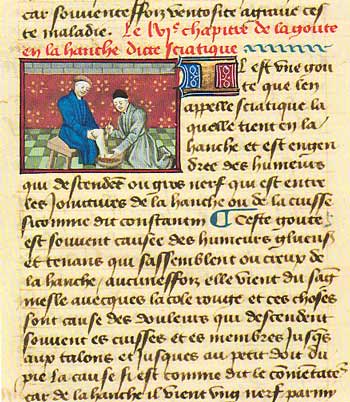 car souuenteffoiz ventosite agitaue ces
te maladie. Le lvje chapitre de la goute
en la hanche dicte sciatique
Il est vne gou
te que len
appelle sciatique la
quelle tient en la
hanche et est engen
dree des humeurs
qui descendent ou gros nerf qui est entre
les iointures de la hanche ou de la cuisse
sicomme dit constantin ¶ Ceste goute
est souuent causee des humeurs glueus
et tenans qui sassemblent ou creux de
la hanche / aucuneffoiz elle vient du sag
mesle auecques la cole rouge et ces choses
sont cause des douleurs qui descendent
souuent es cuisses et es membres iusqs
aux talons et iusques au petit doit du
pie La cause si est comme dit le
car de la hanche il vient vng nerf parmy